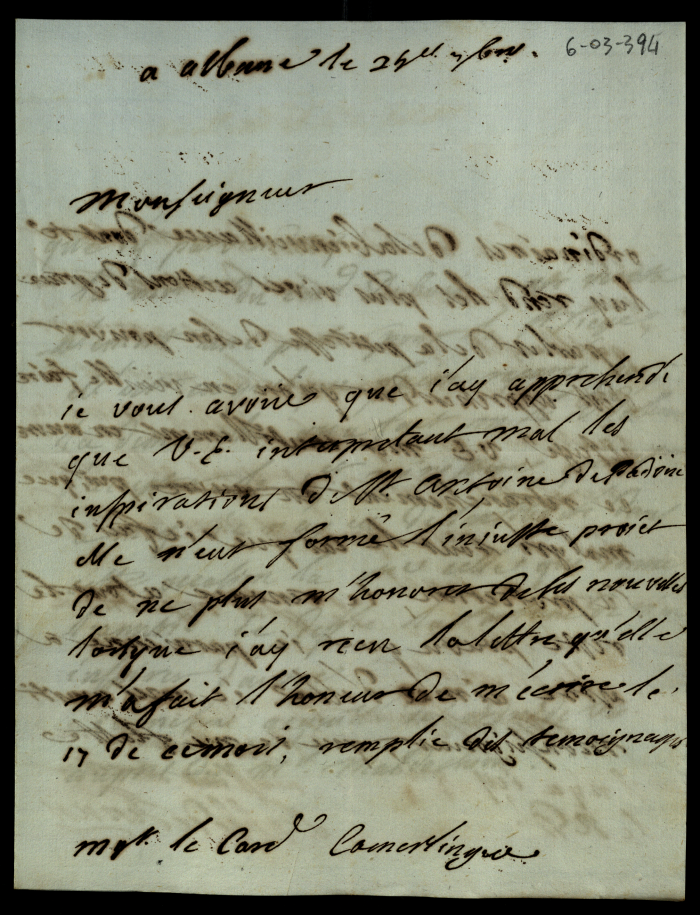 6-03-394
a albane le 25.e 7bre.
Monseigneur
ie vous avoüe que i'ay apprehendé
que V. E. interpretant mal les
inspirations de St. Antoine de Padoüe
elle n'eut formé l'iniuste proiet
de ne plus m'honorer de ses nouvelles
lorsque i'ay receu la lettre qu'elle
m'a fait l'honeur de m'ecrire le
17 de ce mois, remplie des temoignages
le Card Camerlingue